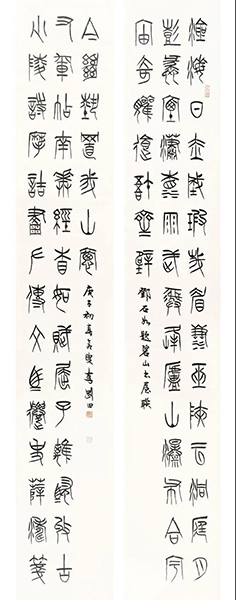 滄海日赤城霞峨眉雪巫峽云洞庭月
彭蠡煙瀟湘雨武夷峰廬山瀑布合宇
宙奇觀繪吾齋壁
鄧石如題碧山書屋聯
小陵詩摩詰畫左傳文馬遷史薛濤箋
右軍帖南華經相如賦屈子離騷收古
今絕藝置我山窗
庚子初夏